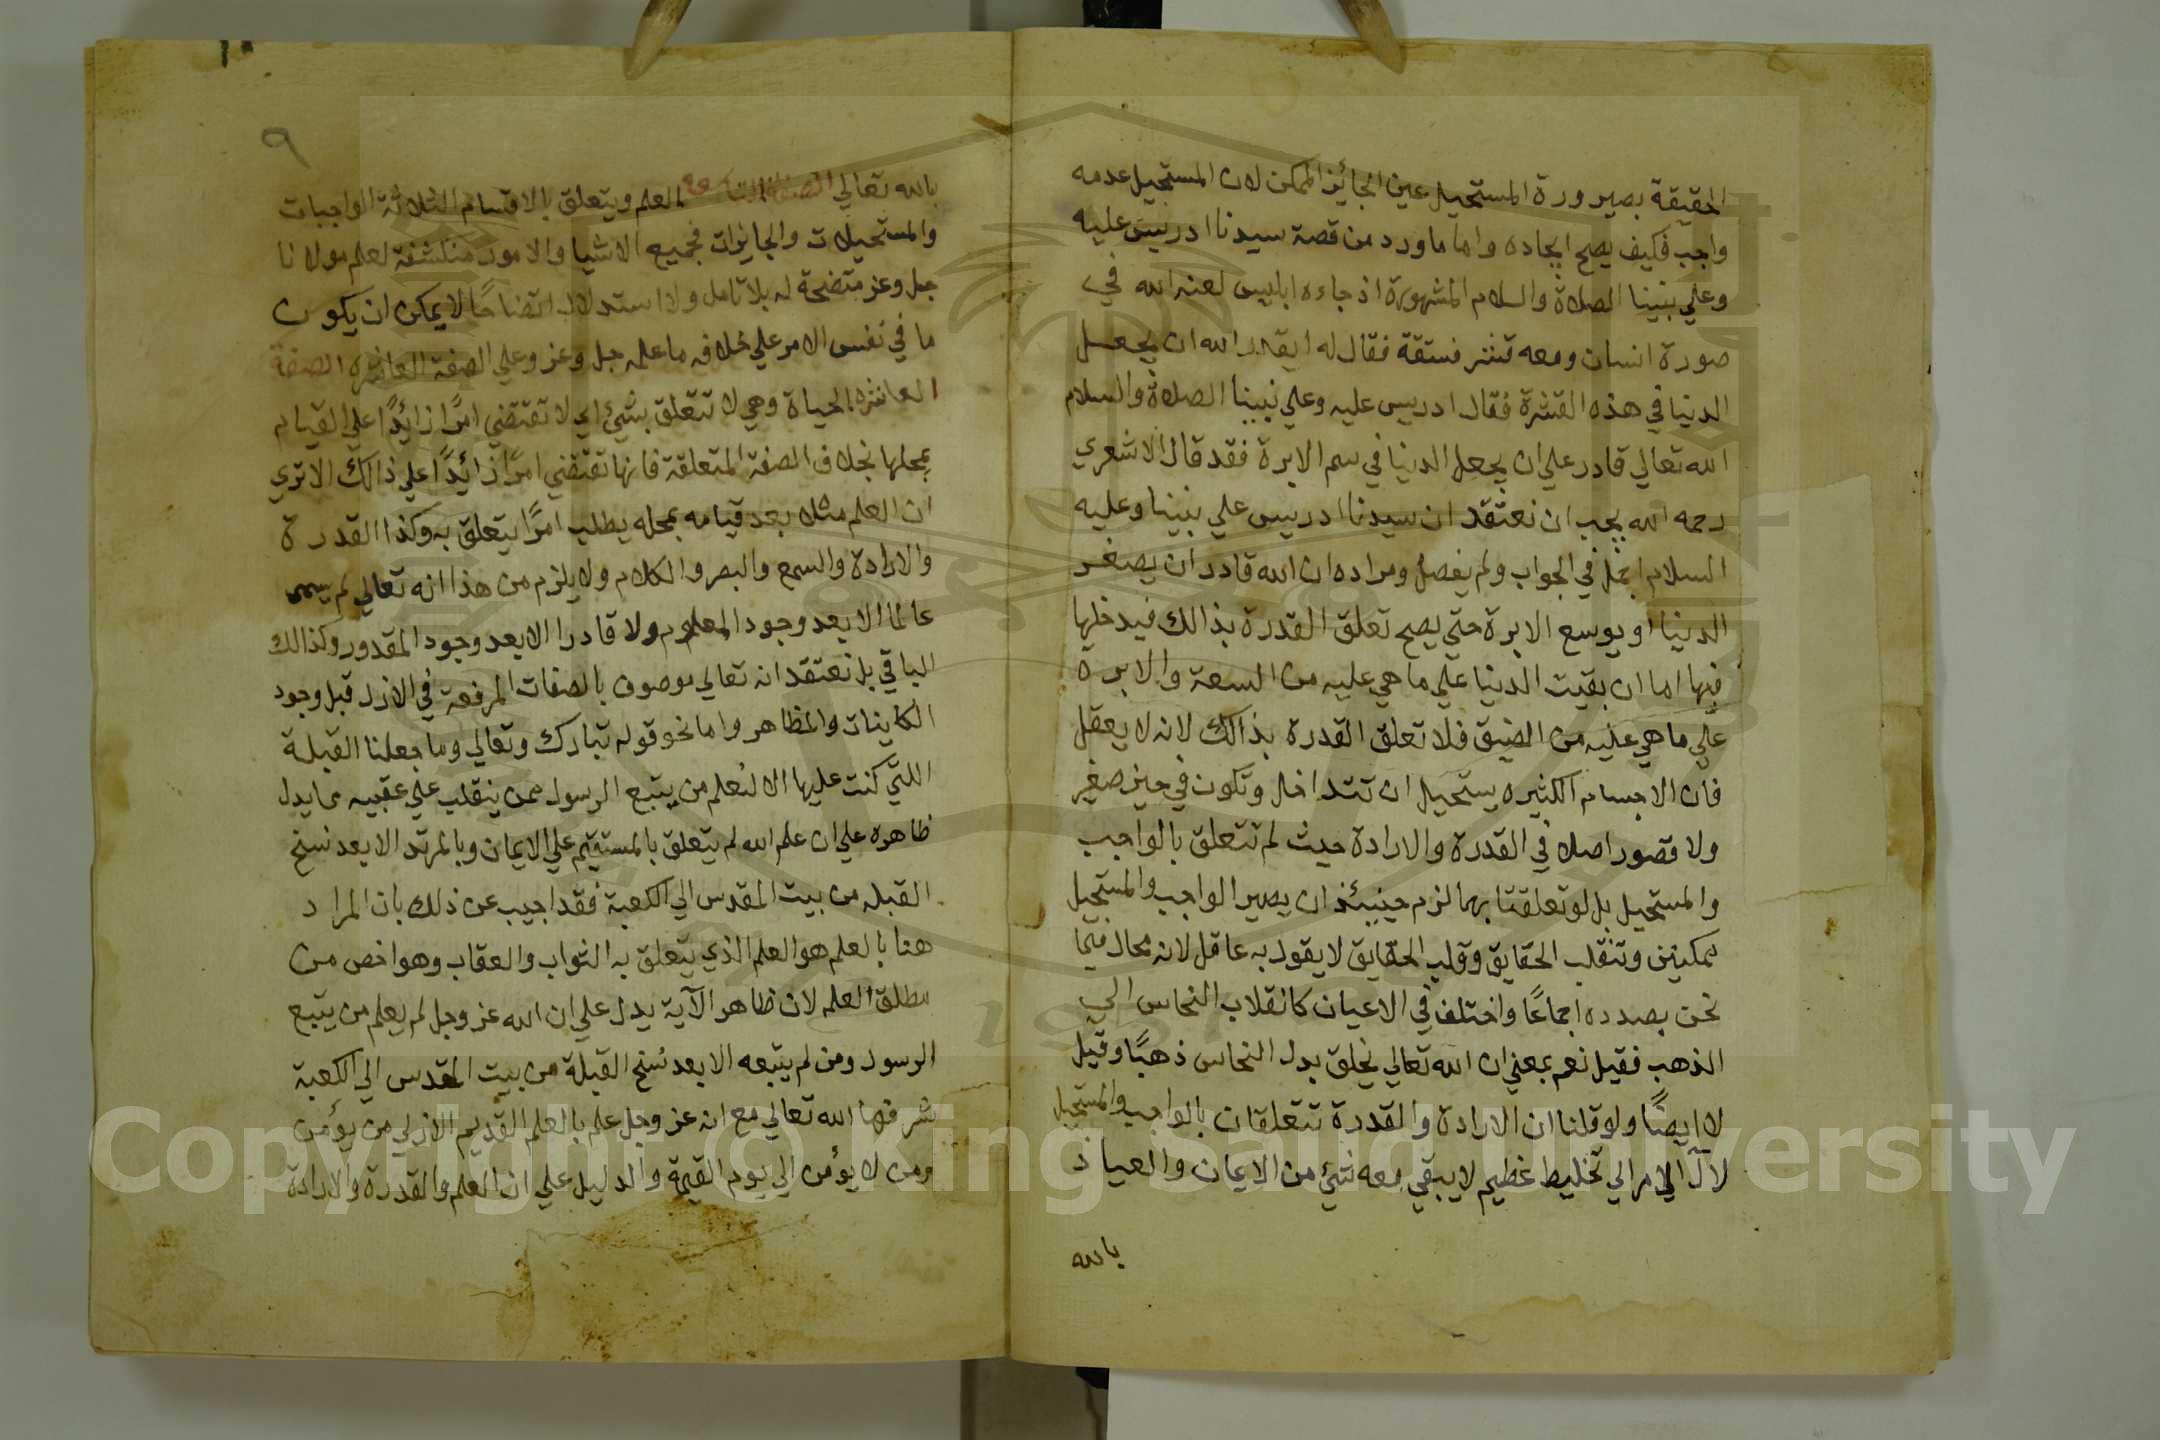 الحقيقة بصيرورة المستحيل عين الجائز الممكن لان المستحيل عدمه
واجب فكيف يصح ايجاده واما ما ورد من قصة سيدنا ادريس عليه
وعلي نبينا الصلاة والسلام المشهورة اذ جاءه ابليس لعنه الله في
صورة انسان ومعه قشر فستقة فقال له ايقدر الله ان يجعل
الدنيا في هذه القشرة فقال ادريس عليه وعلي نبينا الصلاة والسلام
الله تعالي قادر علي ان يجعل الدنيا في سم الابرة فقد قال الاشعري
رحمه الله يجب ان نعتقد ان سيدنا ادريس علي نبينا وعليه
السلام اجمل في الجواب ولم يفصل ومراده ان الله قادر ان يصغر
الدنيا او يوسع الابرة حتي يصح تعلق القدرة بذالك فيدخلها
فيها اما ان بقيت الدنيا علي ما هي عليه من السعة والابرة
علي ما هي عليه من الضيق فلا تعلق القدرة بذالك لانه لا يعقل
فان الاجسام الكثيره يستحيل ان تتداخل وتكون في حيز صغير
ولا قصور اصلا في القدرة والارادة حيث لم تتعلق بالواجب
والمستحيل بل لو تعلقتا بهما لزم حينئذ ان يصير الواجب والمستحيل
ممكنين وتنقلب الحقايق وقلب الحقايق لا يقول به عاقل لانه محال فيما
نحن بصدده اجماعًا واختلف في الاعيان كانقلاب النحاس الي
الذهب فقيل نعم بمعني ان الله تعالي يخلق بدل النحاس ذهبًا وقيل
لا ايضًا ولو قلنا ان الارادة والقدرة تتعلقان بالواجب والمستحيل
لآل الامر الي تخليط عظيم لا يبقي معه شئ من الايمان والعياذ
بالله
٩
بالله تعالي الصفة التاسعة العلم ويتعلق بالاقسام الثلاثة الواجبات
والمستحيلات والجايزات فجميع الاشيا والامور منكشفة لعلم مولانا
جل وعز متضحة له بلا تامل ولا استدلال اتضاحًا لا يمكن ان يكون
ما في نفس الامر علي خلاف ما علمه جل وعز وعلي الصفة العاشره الصفة
العاشره الحياة وهي لا تتعلق بشئ اي لا تقتضي امرًا زايدًا علي القيام
بمحلها بخلاف الصفة المتعلقة فانها تقتضي امرًا زائدًا علي ذالك الا تري
ان العلم مثلا بعد قيامه بمحله يطلب امرًا يتعلق به وكذا القدرة
والارادة والسمع والبصر والكلام ولا يلزم من هذا انه تعالي لم يسم
عالما الا بعد وجود المعلوم ولا قادرا الا بعد وجود المقدور وكذالك
الباقي بل نعتقد انه تعالي موصوف بالصفات المرفعة في الازل قبل وجود
الكاينات والمظاهر واما نحو قوله تبارك وتعالي وما جعلنا القبلة
اللتي كنت عليها الا لنعلم من يتبع الرسول ممن ينقلب علي عقبيه مما يدل
ظاهره علي ان علم الله لم يتعلق بالمستقيم علي الايمان وبالمرتد الا بعد نسخ
القبله من بيت المقدس الي الكعبة فقد اجيب عن ذلك بان المراد
هنا بالعلم هو العلم الذي يتعلق به الثواب والعقاب وهو اخص من
مطلق العلم لان ظاهر الآية يدل علي ان الله عز وجل لم يعلم من يتبع
الرسول ومن لم يتبعه الا بعد نسخ القبلة من بيت المقدس الي الكعبة
شرفها الله تعالي مع انه عز وجل علم بالعلم القديم الازلي من يؤمن
ومن لا يؤمن الي يوم القيمة والدليل علي ان العلم والقدرة والارادة
Copyright © King Saud University